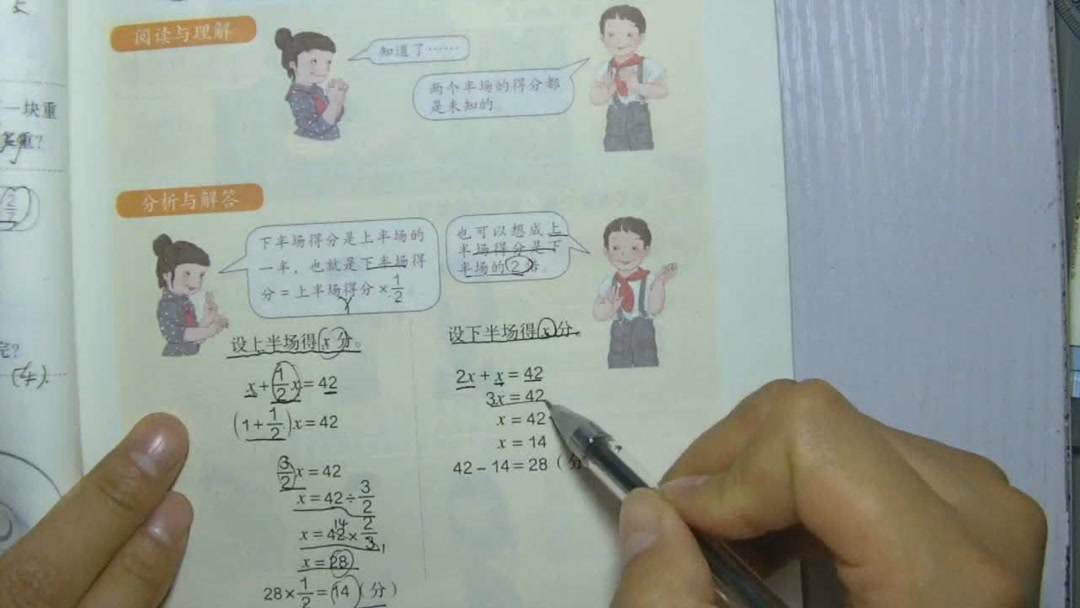 一块重
阅读与理解
知道了……
两个半场的得分都
是未知的。
分析与解答
下半场得分是上半场的
一半，也就是下半场得
分＝上半场得分×1/2
也可以想成上
半场得分是下
半场的2倍。
设上半场得x分。
x+1/2x=42
(1+1/2)x=42
3/2x=42
x=42÷3/2
x=42×2/3
14
1
x=28
28×1/2=14（分）
设下半场得x分。
2x+x=42
3x=42
x=42
x=14
42-14=28（分